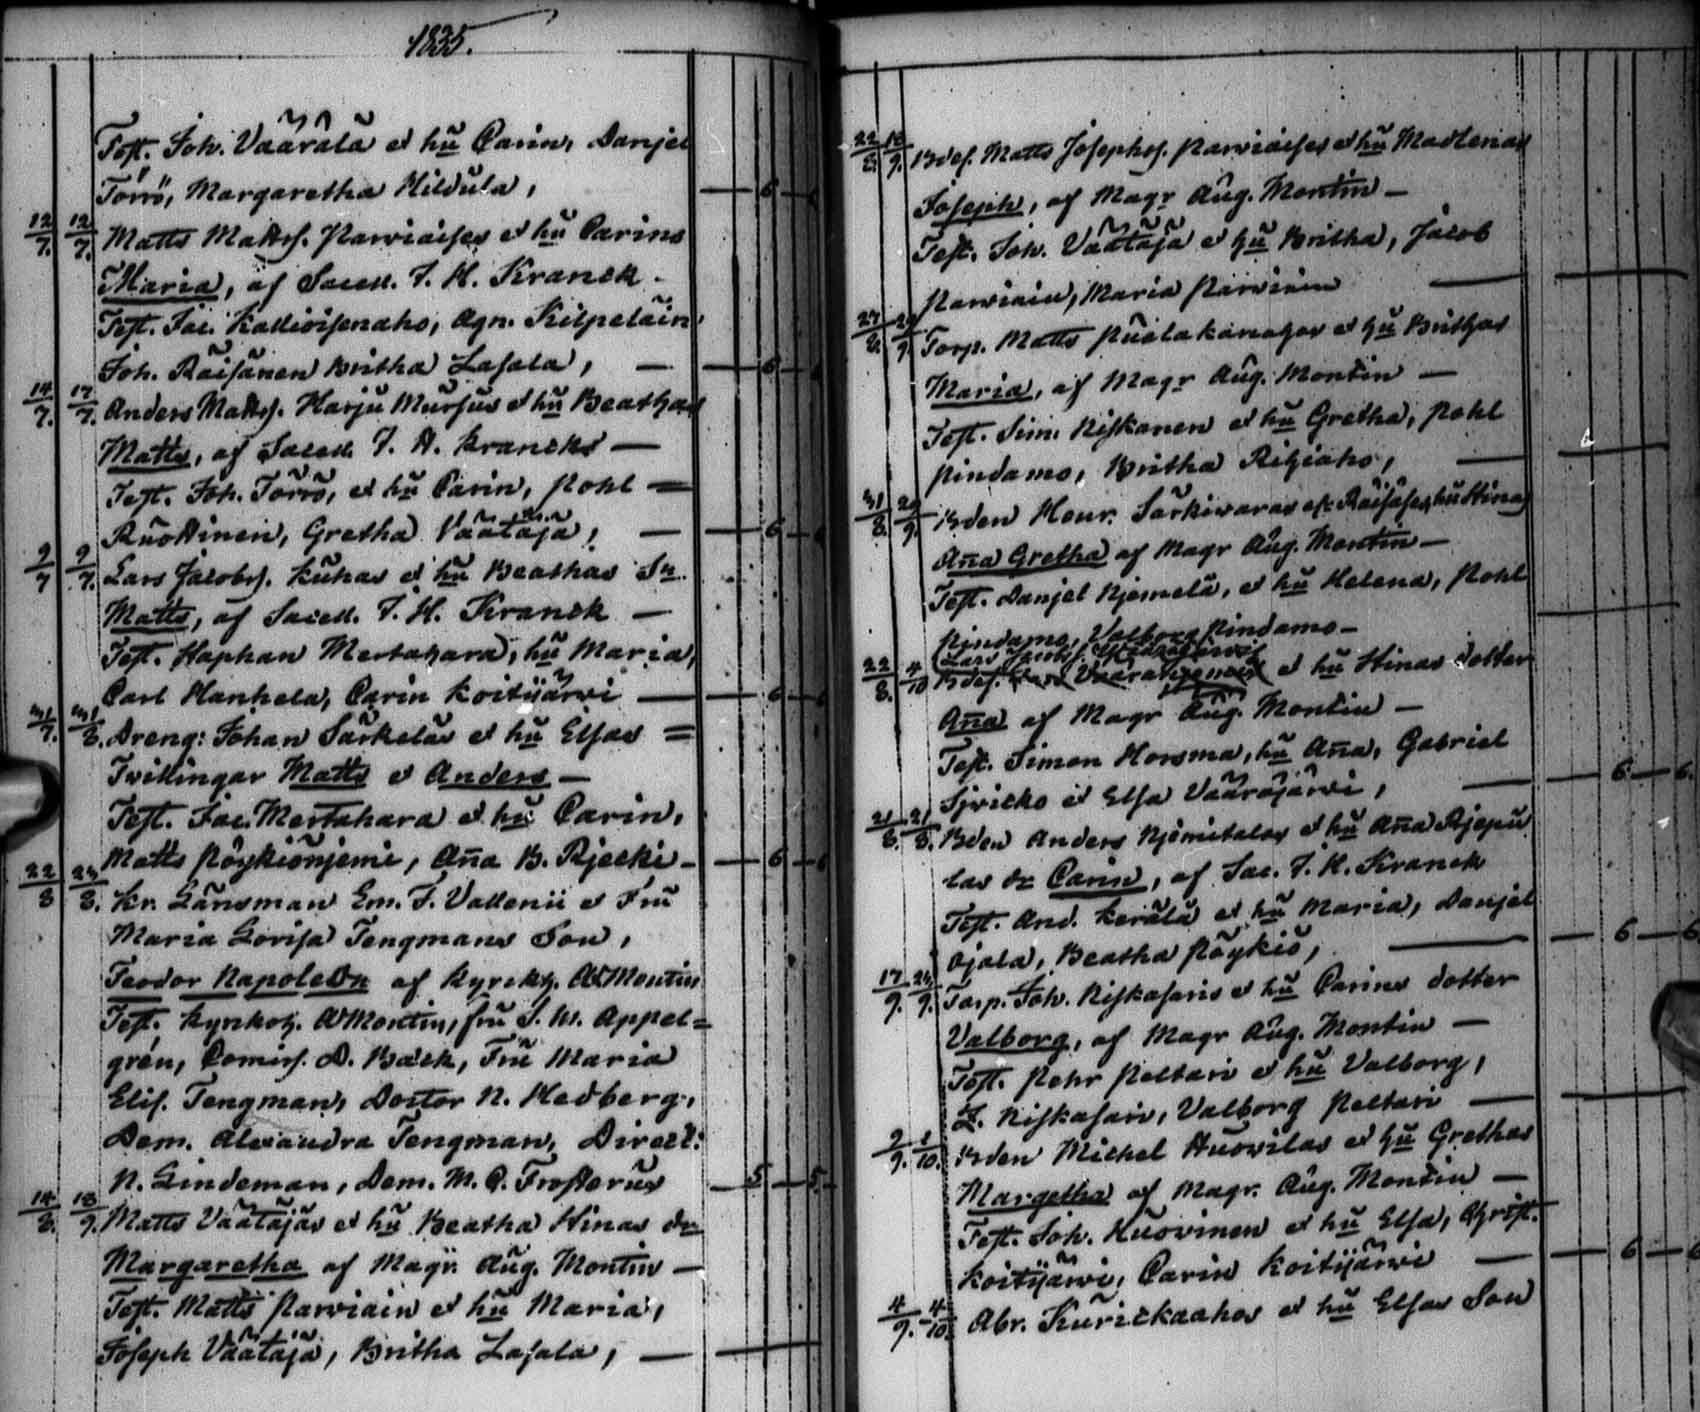 1835.
Test. Joh. Väärälä et hü Carin, Danjel
Törrö, Margaretha Hildula, — 6 —
12/7. 12/7. Matts Mattss. Parviaises et hü Carins
Maria, af Sacell. J. H. Kranck -
Test. Jac. Kallioisenaho, Agn. Kilpeläin
Joh. Räisänen Britha Lasala, — 6 —
14/7. 17/7. Anders Mattss. Harju Mursus et hü Beathas
Matts, af Sacell. J. H. Krancks —
Test. Joh. Törrö, et hü Carin, Pohl =
Ruottinen, Gretha Väätäjä, — 6 —
9/7 9/7. Lars Jacobss. Kuhas et hü Beathas Sn.
Matts, af Sacell. J. H. Kranck —
Test. Staphan Mertahara, hü Maria,
Carl Hanhela, Carin Koitijärvi — 6 —
31/7. 31/8. Dreng: Johan Särkeläs et hü Elsas =
Tvillingar Matts et Anders —
Test. Jac. Mertahara et hü Carin,
Matts Pöykiönjemi, Aña B. Rjecki - — 6 —
22/8 23/8. Kr. Länsman Em. F. Vallenii et Fru
Maria Lovisa Tengmans Son,
Teodor Napoleon af Kyrckh. A Montin
Test. Kyrckoh. A Montin, fru S. W. Appel=
grén, Comiss. D. Bäck, Fru Maria
Elis. Tengman, Doctor N. Hedberg,
Dem. Alexandra Tengman, Direct:
N. Lindeman, Dem. M. C. Frosterus — 5 — 5.
14/8. 13/9. Matts Väätäjäs et hü Beatha Stinas dr
Margaretha af Magr. Aug. Montin —
Test. Matts Parviain et hü Maria,
Joseph Väätäjä, Britha Lasala, —
22/8. 12/9. Bdes. Matts Josephss. Parviaises et hü Madlenas
Joseph, af Magr Aug. Montin —
Test. Joh. Väätäjä et hü Britha, Jacob
Parviain, Maria Parviain —
27/8. 29/9. Torp. Matts Puolakanahos et hü Brithas
Maria, af Magr Aug. Montin —
Test. Sim. Kiskanen et hü Gretha, Pohl
Pindamo, Britha Ritjiaho, —
31/8. 29/9. Bden Henr. Särkivaras et hü Stinas
Aña Gretha af Magr Aug. Montin —
Test. Danjel Njemelä, et hü Helena, Pohl
Pindamo, Valborg Pindamo —
22/8. 4/10 Bdes. et hü Stinas dotter
Aña af Magr Aug. Montin —
Test. Simon Horsma, hü Aña, Gabriel
Sjvicko et Elsa Vääräjärvi, — 6 — 6.
21/8. 21/8. Bden Anders Njemitalos et hü Aña Rjepu
las dr Carin, af Sac. J. H. Kranck
Test. And. Kerälä et hü Maria, Danjel
Ojala, Beatha Pöykiö, — 6 — 6
17/9. 24/9. Torp. Joh. Kiskasaris et hü Carins dotter
Valborg, af Magr Aug. Montin —
Test. Pehr Peltari et hü Valborg,
L. Kiskasari, Valborg Peltari —
2/9. 1/10. Bden Michel Huovilas et hü Grethas
Margetha af Magr. Aug. Montin —
Test. Joh. Huovinen et hü Elsa, Christ.
Koitijärvi, Carin Koitijärvi — 6 — 6
4/9. 4/10. Abr. Kurickaahos et hü Elsas Son